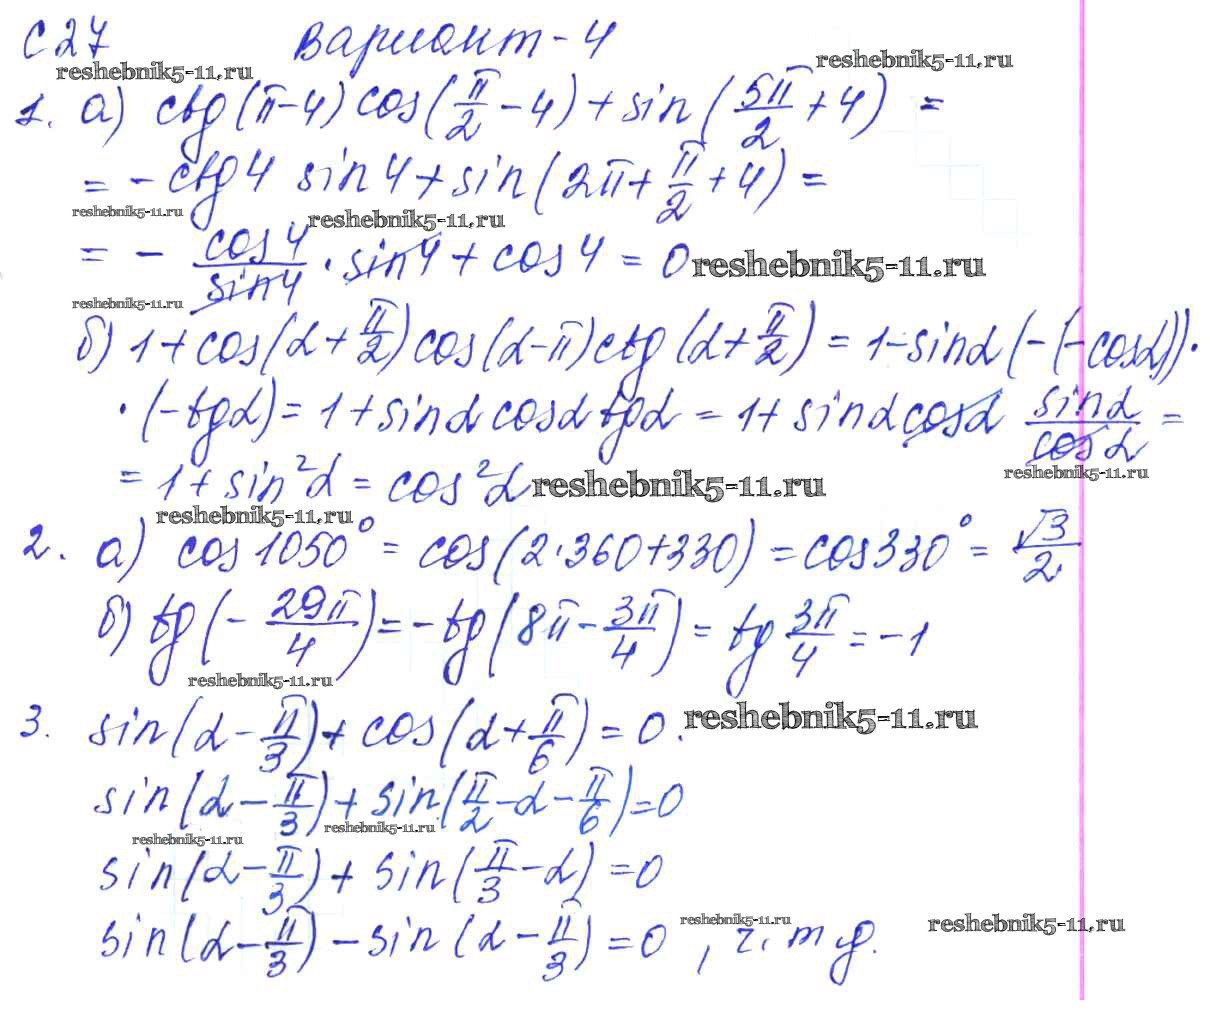 С 27 Вариант - 4
reshebnik5-11.ru reshebnik5-11.ru
1. а) ctg(π-4) cos(π/2 - 4) + sin(5π/2 + 4) =
= - ctg4 sin4 + sin(2π + π/2 + 4) =
reshebnik5-11.ru reshebnik5-11.ru
= - cos4/sin4 · sin4 + cos4 = 0 reshebnik5-11.ru
reshebnik5-11.ru
б) 1 + cos(α + π/2) cos(α - π) ctg(α + π/2) = 1 - sinα (-(-cosα)) ·
· (-tgα) = 1 + sinα cosα tgα = 1 + sinα cosα sinα/cosα =
reshebnik5-11.ru
= 1 + sin²α = cos²α reshebnik5-11.ru
reshebnik5-11.ru
2. а) cos 1050° = cos(2·360+330) = cos330° = √3/2
б) tg(- 29π/4) = - tg(8π - 3π/4) = tg 3π/4 = -1
reshebnik5-11.ru
3. sin(α - π/3) + cos(α + π/6) = 0. reshebnik5-11.ru
sin(α - π/3) + sin(π/2 - α - π/6) = 0
reshebnik5-11.ru reshebnik5-11.ru
sin(α - π/3) + sin(π/3 - α) = 0
sin(α - π/3) - sin(α - π/3) = 0, ч. т д. reshebnik5-11.ru reshebnik5-11.ru